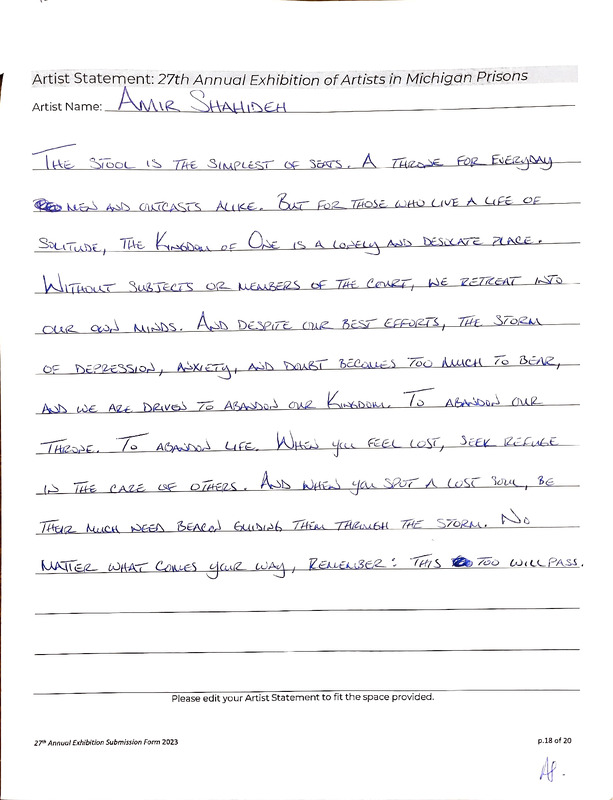 Artist Statement: 27th Annual Exhibition of Artists in Michigan Prisons
Artist Name: AMIR SHAHIDEH
THE STOOL IS THE SIMPLEST OF SEATS. A THRONE FOR EVERYDAY
MEN AND OUTCASTS ALIKE. BUT FOR THOSE WHO LIVE A LIFE OF
SOLITUDE, THE KINGDOM OF ONE IS A LONELY AND DESOLATE PLACE.
WITHOUT SUBJECTS OR MEMBERS OF THE COURT, WE RETREAT INTO
OUR OWN MINDS. AND DESPITE OUR BEST EFFORTS, THE STORM
OF DEPRESSION, ANXIETY, AND DOUBT BECOMES TOO MUCH TO BEAR,
AND WE ARE DRIVEN TO ABANDON OUR KINGDOM. TO ABANDON OUR
THRONE. TO ABANDON LIFE. WHEN YOU FEEL LOST, SEEK REFUGE
IN THE CARE OF OTHERS. AND WHEN YOU SPOT A LOST SOUL, BE
THEIR MUCH NEED BEACON GUIDING THEM THROUGH THE STORM. NO
MATTER WHAT COMES YOUR WAY, REMEMBER: THIS TOO WILL PASS.
Please edit your Artist Statement to fit the space provided.
27th Annual Exhibition Submission Form 2023
p.18 of 20